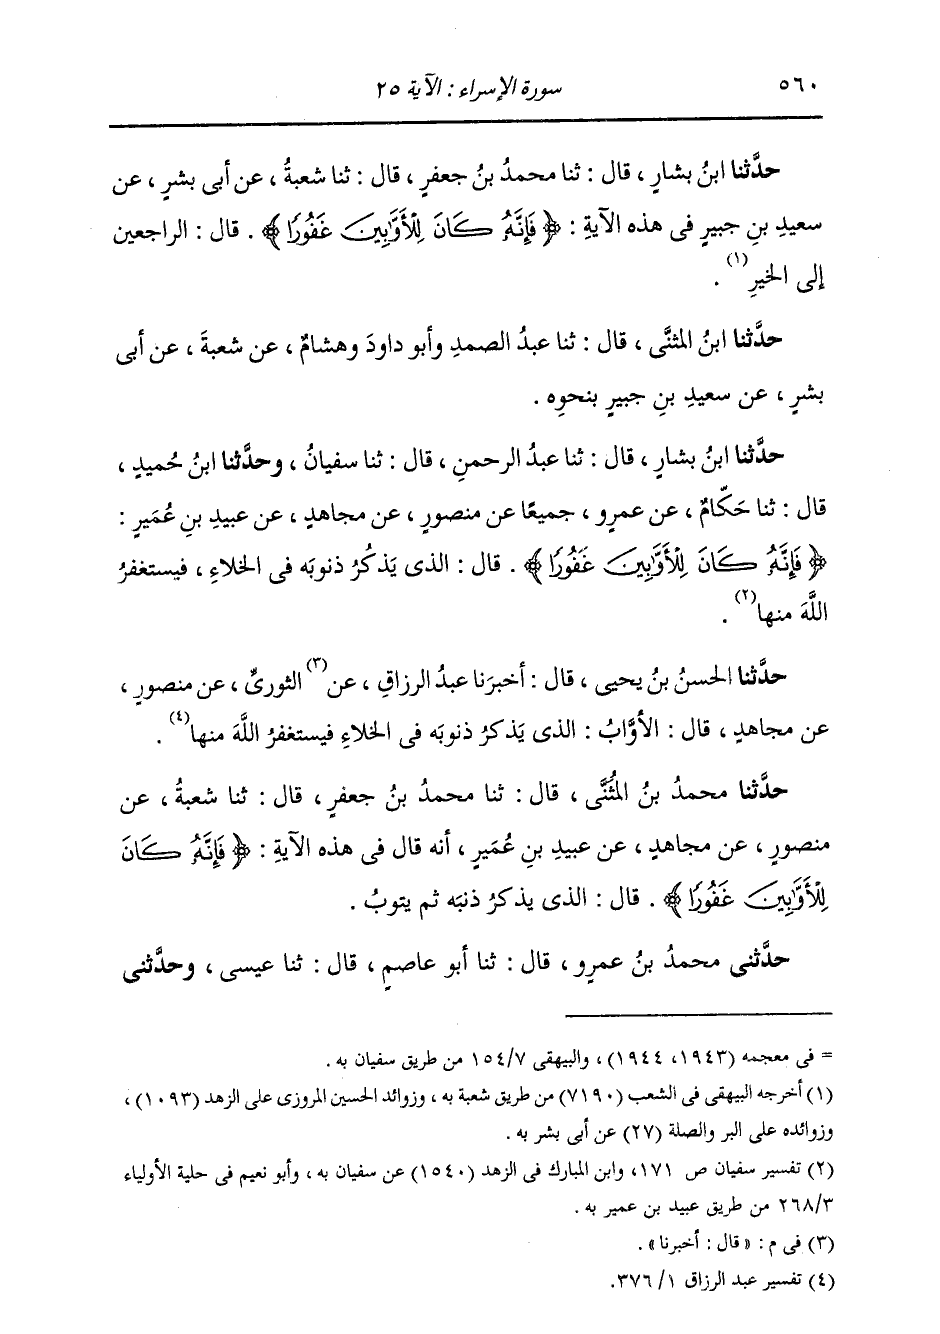 ٥٦٠ سورة الإسراء : الآية ٢٥
حدَّثنا ابنُ بشارٍ ، قال : ثنا محمدُ بنُ جعفرٍ ، قال : ثنا شعبةُ ، عن أبى بشرٍ ، عن
سعيدِ بنِ جبيرٍ فى هذه الآيةِ : ﴿ فَإِنَّهُ كَانَ لِلْأَوَّابِينَ غَفُورًا ﴾ . قال : الراجعين
إلى الخيرِ (١) .
حدَّثنا ابنُ المثنَّى ، قال : ثنا عبدُ الصمدِ وأبو داودَ وهشامٌ ، عن شعبةَ ، عن أبى
بشرٍ ، عن سعيدِ بنِ جبيرٍ بنحوِه .
حدَّثنا ابنُ بشارٍ ، قال : ثنا عبدُ الرحمنِ ، قال : ثنا سفيانُ ، وحدَّثنا ابنُ حُميدٍ ،
قال : ثنا حَكَّامٌ ، عن عمرٍو ، جميعًا عن منصورٍ ، عن مجاهدٍ ، عن عبيدِ بنِ عُمَيرٍ :
﴿ فَإِنَّهُ كَانَ لِلْأَوَّابِينَ غَفُورًا ﴾ . قال : الذى يَذكُرُ ذنوبَه فى الخلاءِ ، فيستغفرُ
اللَّهَ منها (٢) .
حدَّثنا الحسنُ بنُ يحيى ، قال : أخبرَنا عبدُ الرزاقِ ، عن (٣) الثورىِّ ، عن منصورٍ ،
عن مجاهدٍ ، قال : الأوَّابُ : الذى يَذكرُ ذنوبَه فى الخلاءِ فيستغفرُ اللَّهَ منها (٤) .
حدَّثنا محمدُ بنُ المُثَنَّى ، قال : ثنا محمدُ بنُ جعفرٍ ، قال : ثنا شعبةُ ، عن
منصورٍ ، عن مجاهدٍ ، عن عبيدِ بنِ عُمَيرٍ ، أنه قال فى هذه الآيةِ : ﴿ فَإِنَّهُ كَانَ
لِلْأَوَّابِينَ غَفُورًا ﴾ . قال : الذى يذكرُ ذنبَه ثم يتوبُ .
حدَّثنى محمدُ بنُ عمرٍو ، قال : ثنا أبو عاصمٍ ، قال : ثنا عيسى ، وحدَّثنى
= فى معجمه (١٩٤٣، ١٩٤٤) ، والبيهقى ١٥٤/٧ من طريق سفيان به .
(١) أخرجه البيهقى فى الشعب (٧١٩٠) من طريق شعبة به ، وزوائد الحسين المروزى على الزهد (١٠٩٣) ،
وزوائده على البر والصلة (٢٧) عن أبى بشر به .
(٢) تفسير سفيان ص ١٧١، وابن المبارك فى الزهد (١٥٤٠) عن سفيان به ، وأبو نعيم فى حلية الأولياء
٢٦٨/٣ من طريق عبيد بن عمير به .
(٣) فى م : « قال : أخبرنا » .
(٤) تفسير عبد الرزاق ١/ ٣٧٦.